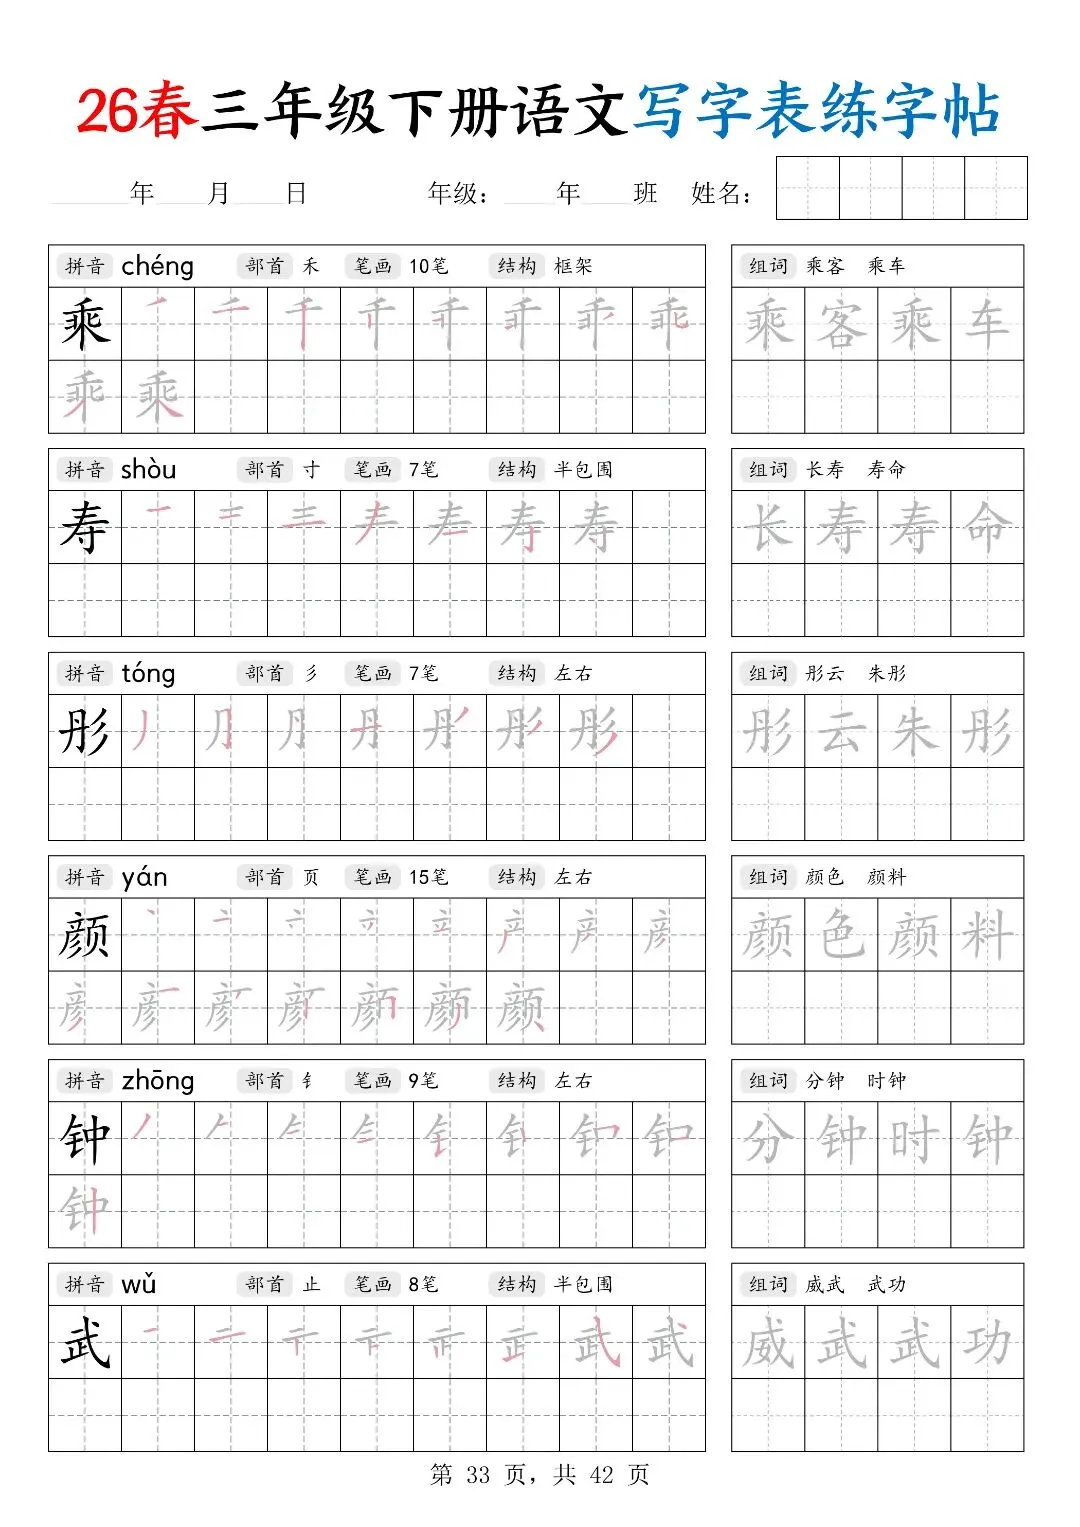 26春三年级下册语文写字表练字帖
年 月 日 年级： 年 班 姓名：
拼音 chéng 部首 禾 笔画 10笔 结构 框架 组词 乘客 乘车
乘 乘客乘车
乘
拼音 shòu 部首 寸 笔画 7笔 结构 半包围 组词 长寿 寿命
寿 寿 长寿寿命
拼音 tóng 部首 彡 笔画 7笔 结构 左右 组词 彤云 朱彤
彤 彤 彤云朱彤
拼音 yán 部首 页 笔画 15笔 结构 左右 组词 颜色 颜料
颜 颜色颜料
颜
拼音 zhōng 部首 钅 笔画 9笔 结构 左右 组词 分钟 时钟
钟 分钟时钟
钟
拼音 wǔ 部首 止 笔画 8笔 结构 半包围 组词 威武 武功
武 武 威武武功
第 33 页，共 42 页